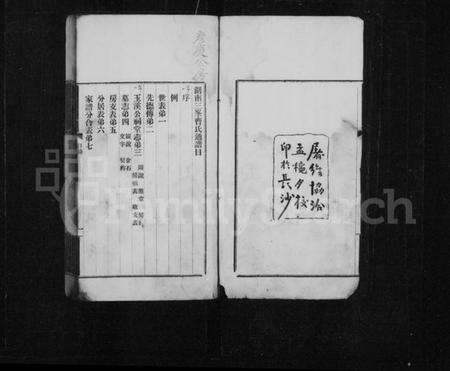 屠維協洽
孟穐夕校
印於長沙
湖南三峯曹氏通譜目
序
例
世表弟一
先德傳弟二
玉溪公祠堂志弟三
墓志弟四
房支表弟五
分居表弟六
家譜分合表弟七
FamilySearch